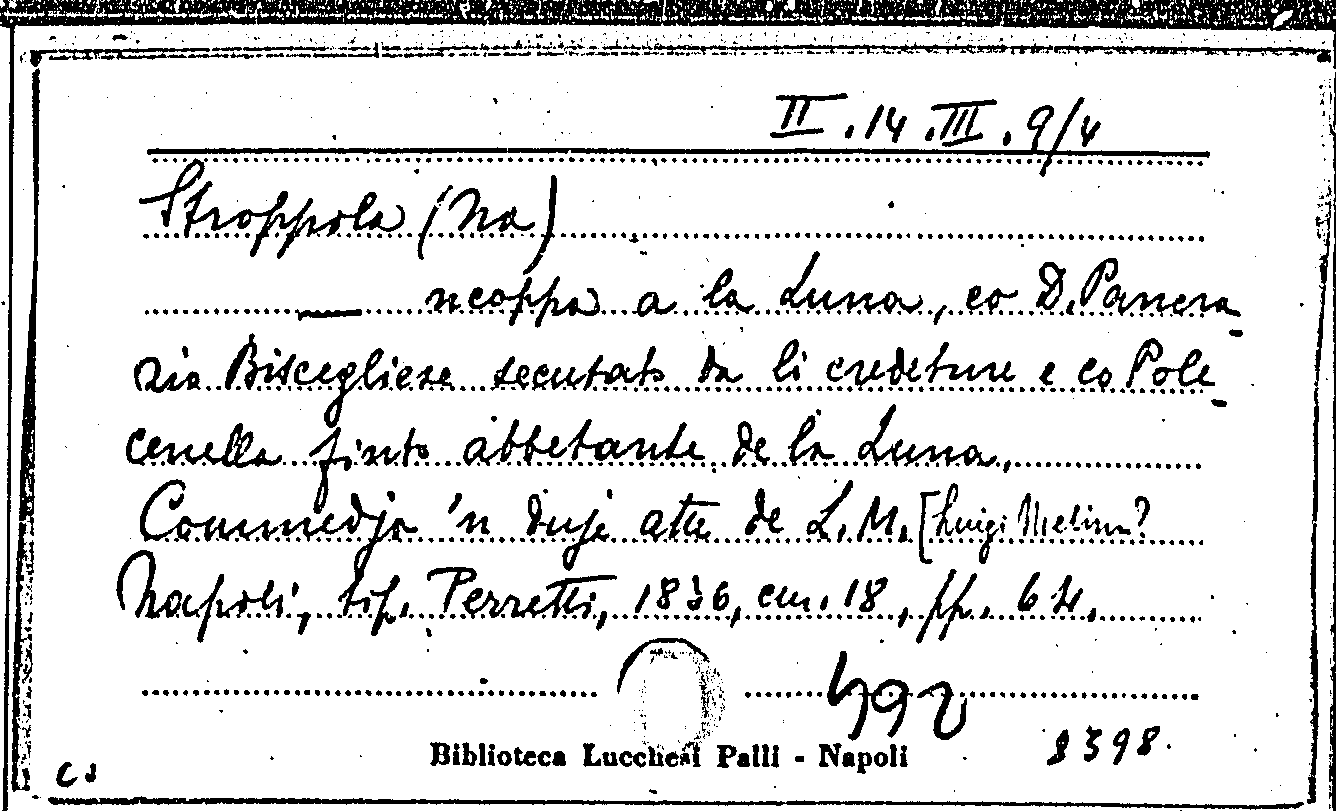 II.14.III.9/4
Stroppola (Na)
— ncoppa a la Luna, co D. Pancra-
zio Biscegliese secutato da li credeture e co Pole-
cenella finto abbetante de la Luna.
Commedja 'n duje atte de L. M. [Luigi Melina?
Napoli, tip. Perretti, 1836, cm. 18, pp. 64.
492
Biblioteca Lucchesi Palli - Napoli
8398